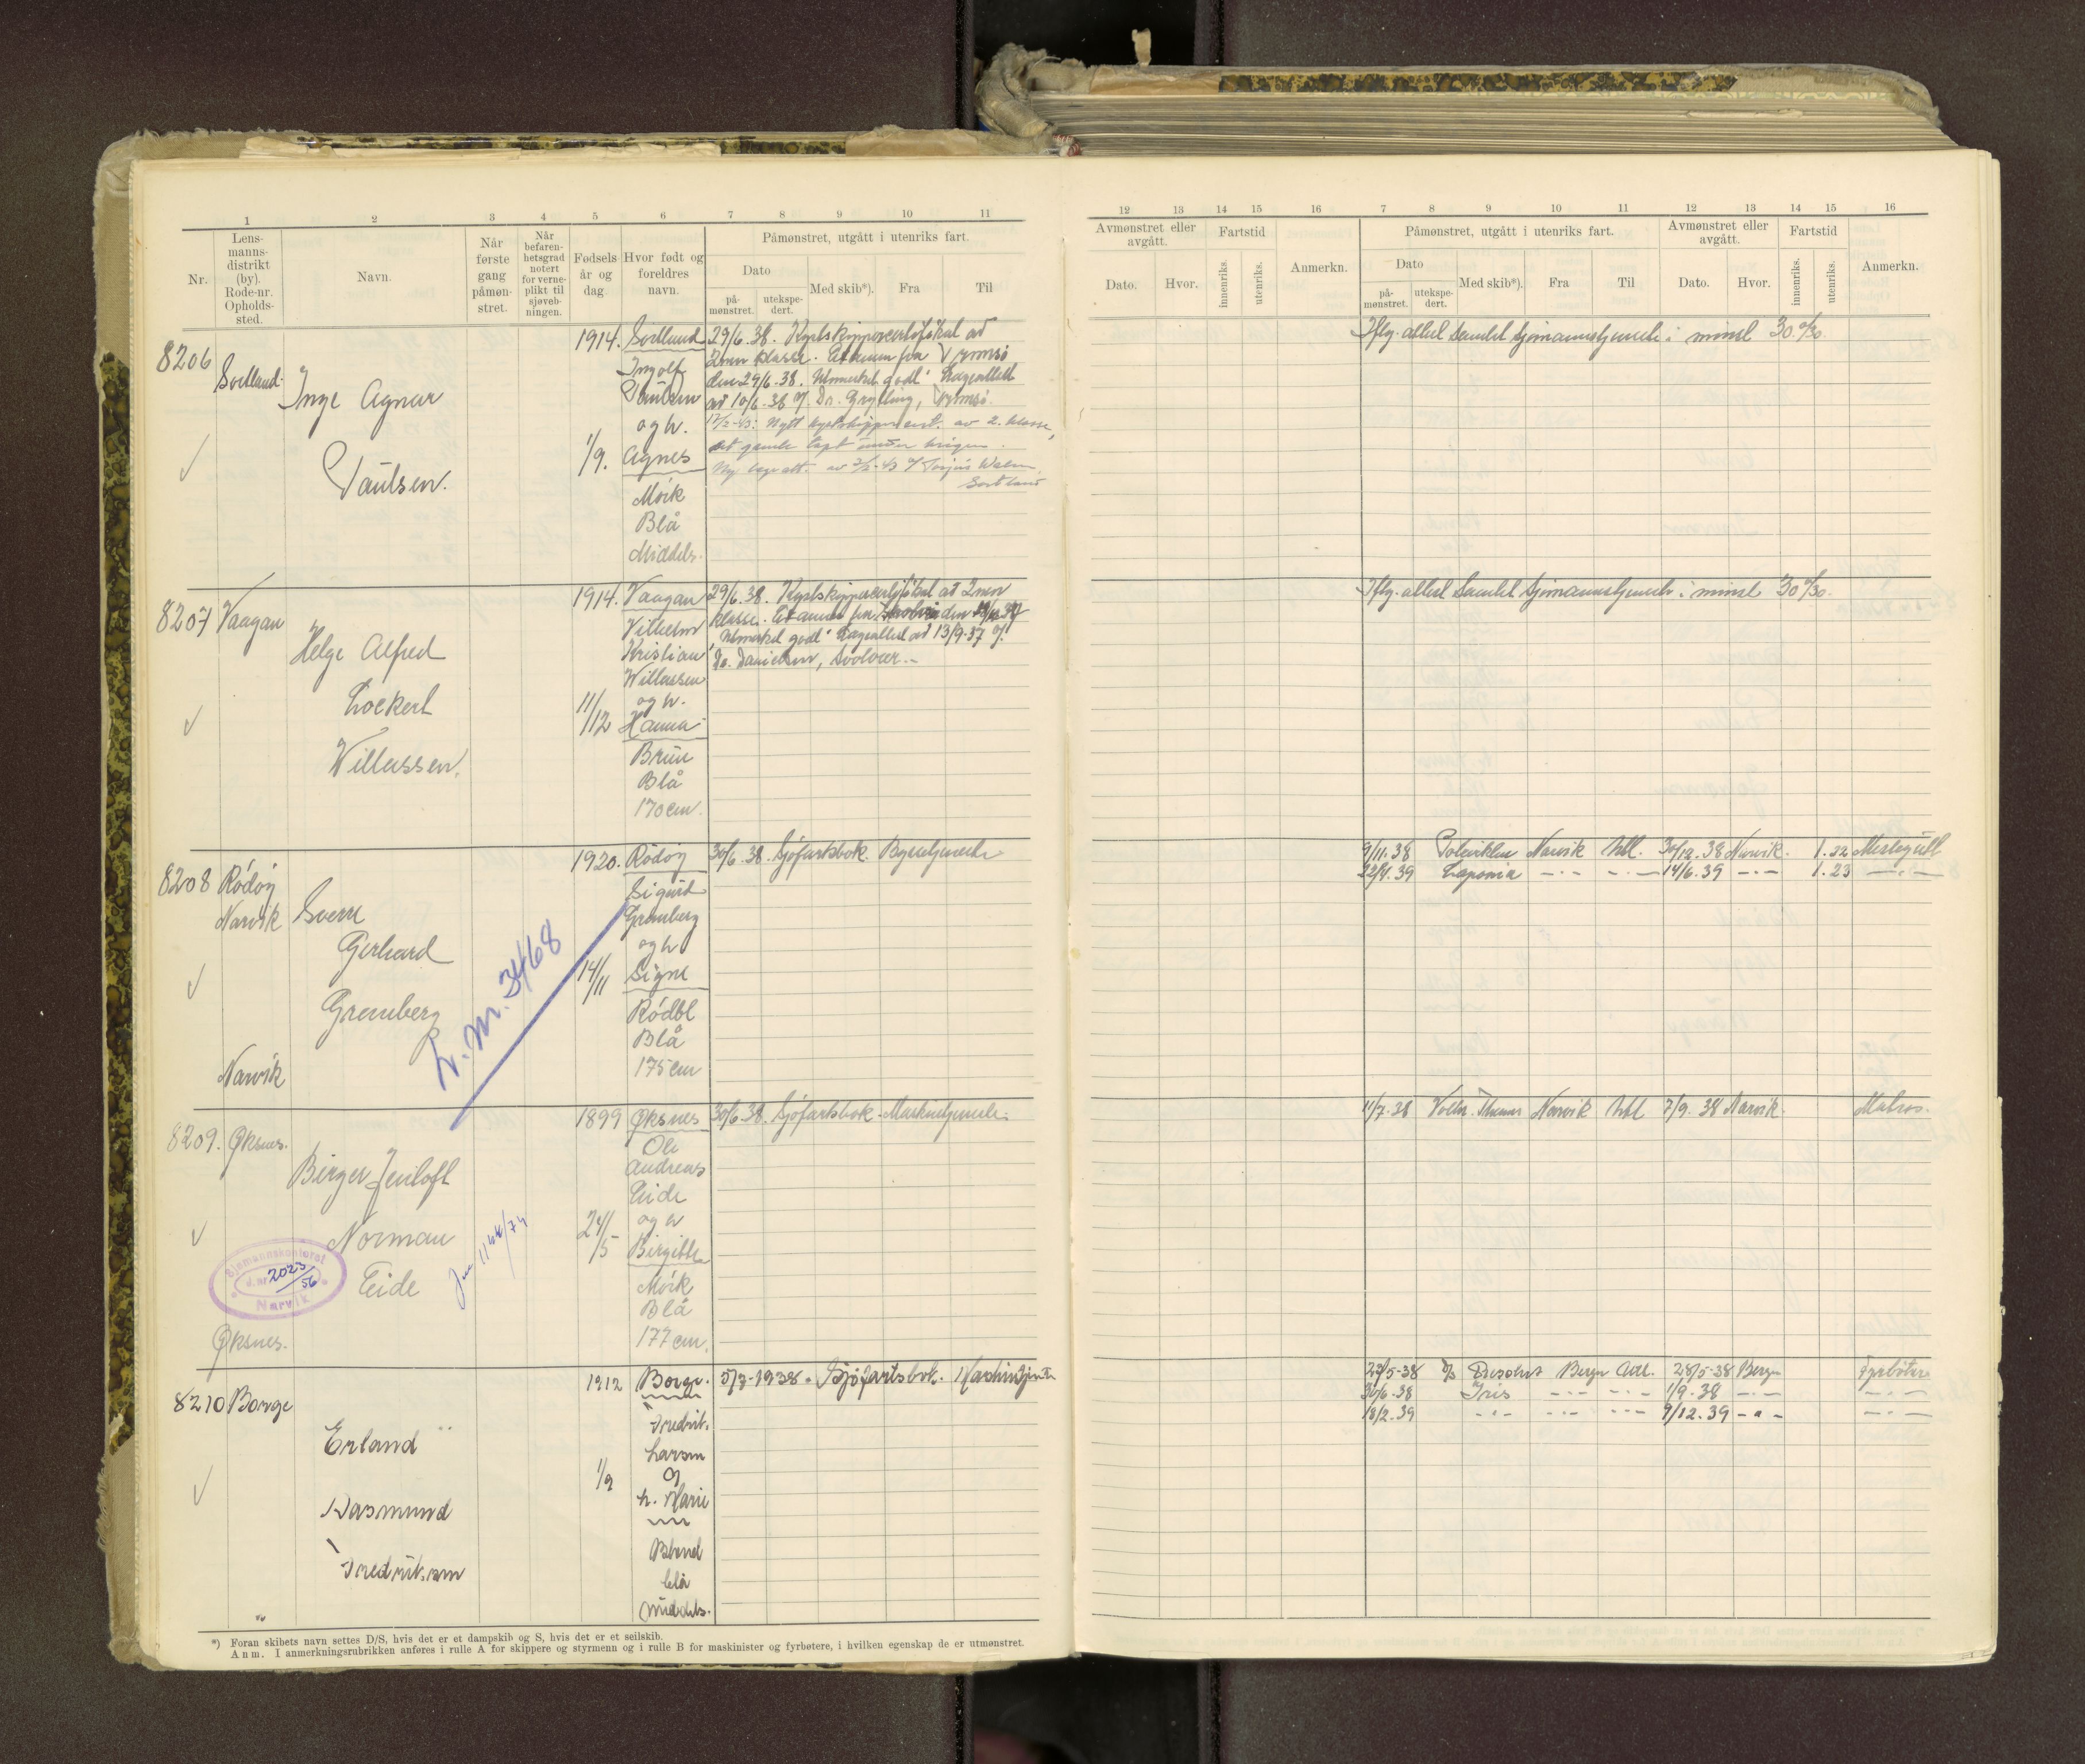 1 2 3 4 5 6 7 8 9 10 11
Nr.
Lens-
manns-
distrikt
(by).
Rode-nr.
Opholds-
sted.
Navn.
Når
første
gang
påmøn-
stret.
Når
befaren-
hetsgrad
notert
for verne-
plikt til
sjøveb-
ningen.
Fødsels
år og
dag
Hvor født og
foreldres
navn.
Påmønstret, utgått i utenriks fart.
Dato
på-
mønstret.
utekspe-
dert.
Med skib*).
Fra
Til
8206
Sortland.
Inge Agnar
Paulsen.
1914.
1/9.
Sortland
Ingolf
Paulsen
og h.
Agnes
Mörk
Blå
Middels.
29/6.38. Kystskippercertifikat av
2nen klasse. Eksamen fra Tromsø
den 29/6.38. Utmerket godt. Lægeattest
av 10/6.38 v/ Dr. Grytting, Tromsø.
Nytt kystskippercert. av 2. klasse,
det gamle tapt under krigen.
Sortland
8207
Vaagan
Helge Alfred
Lockert
Willassen.
1914.
11/12
Vaagan
Vilhelm
Kristian
Willassen
og h.
Hanna
Brun
Blå
170 cm.
29/6.38. Kystskippercertifikat av 2nen
klasse. Eksamen fra Svolvær den
Utmerket godt. Lægeattest av 13/9.37 v/
Dr. Danielsen, Svolvær.-
8208
Rödöy
Narvik
Sverre
Gerhard
Grønberg
Narvik
1920.
14/11
Rödöy
Sigurd
Grønberg
og h
Signe
Rödbl
Blå
175 cm
30/6.38. Sjöfartsbok. Byssetjeneste
3468
8209.
Øksnes.
Birger Jentoft
Norman
Eide
Øksnes.
Sjømannskontoret
J.nr 2023/56
Narvik
1144/74
1899
24/5
Øksnes
Ole
Andreas
Eide
og h
Birgitte
Mörk
Blå
177 cm.
30/6.38. Sjöfartsbok - Maskintjeneste.
8210
Borge
Erland
Rasmund
Fredriksen
1912
1/9
Borge.
Fredrik
Larsen
og
h. Marie
Blond
blå
middels.
5/7-1938. Sjöfartsbok. Maskintjeneste
*) Foran skibets navn settes D/S, hvis det er et dampskib og S, hvis det er et seilskib.
Anm. I anmerkningsrubrikken anføres i rulle A for skippere og styrmenn og i rulle B for maskinister og fyrbøtere, i hvilken egenskap de er utmønstret.
12 13 14 15 16 7 8 9 10 11 12 13 14 15 16
Avmønstret eller
avgått.
Dato.
Hvor.
Fartstid
innenriks.
utenriks.
Anmerkn.
Påmønstret, utgått i utenriks fart.
Dato
på-
mønstret.
utekspe-
dert.
Med skib*).
Fra
Til
Avmønstret eller
avgått.
Dato.
Hvor.
Fartstid
innenriks.
utenriks.
Anmerkn.
Iflg. attest samlet sjömannstjeneste i minst 30
Iflg. attest samlet sjömannstjeneste i minst 30
9/11.38 Polcirklen Narvik Utl. 30/12.38 Narvik. 1.22 Messegutt
22/4.39 Laponia -"- -"- 14/6.39 -"- 1.23 -"-
11/7.38 Narvik Utl 7/9.38 Narvik. Matros.
23/5-38 D/s Resolut Bergen Utl. 28/5-38 Bergen Fyrböter
30/6.38 Iris -"- -"- 1/9.38 -"- -"-
18/2.39 -"- -"- -"- 9/12.39 -"- -"-